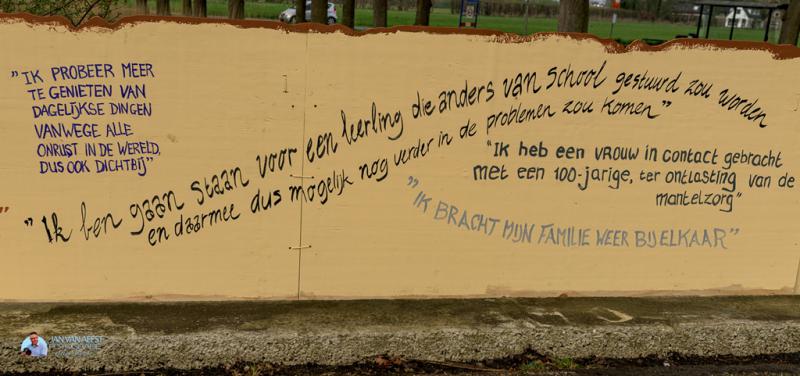 "IK PROBEER MEER
TE GENIETEN VAN
DAGELIJKSE DINGEN
VANWEGE ALLE
ONRUST IN DE WERELD,
DUS OOK DICHTBIJ"
"Ik ben gaan staan voor een leerling die anders van school gestuurd zou worden
en daarmee dus mogelijk nog verder in de problemen zou komen"
"Ik heb een vrouw in contact gebracht
met een 100-jarige, ter ontlasting van de
mantelzorg"
"IK BRACHT MIJN FAMILIE WEER BIJ ELKAAR"
JAN VAN AEFST